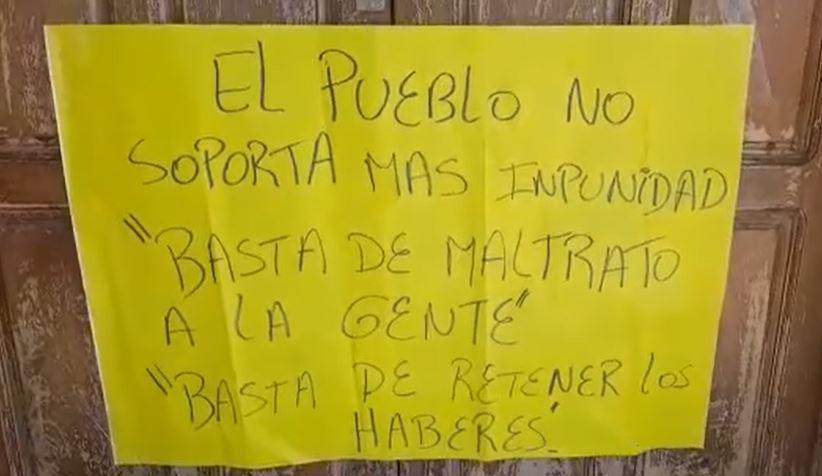 EL PUEBLO NO
SOPORTA MAS INPUNIDAD
"BASTA DE MALTRATO
A LA GENTE"
"BASTA DE RETENER los
HABERES"